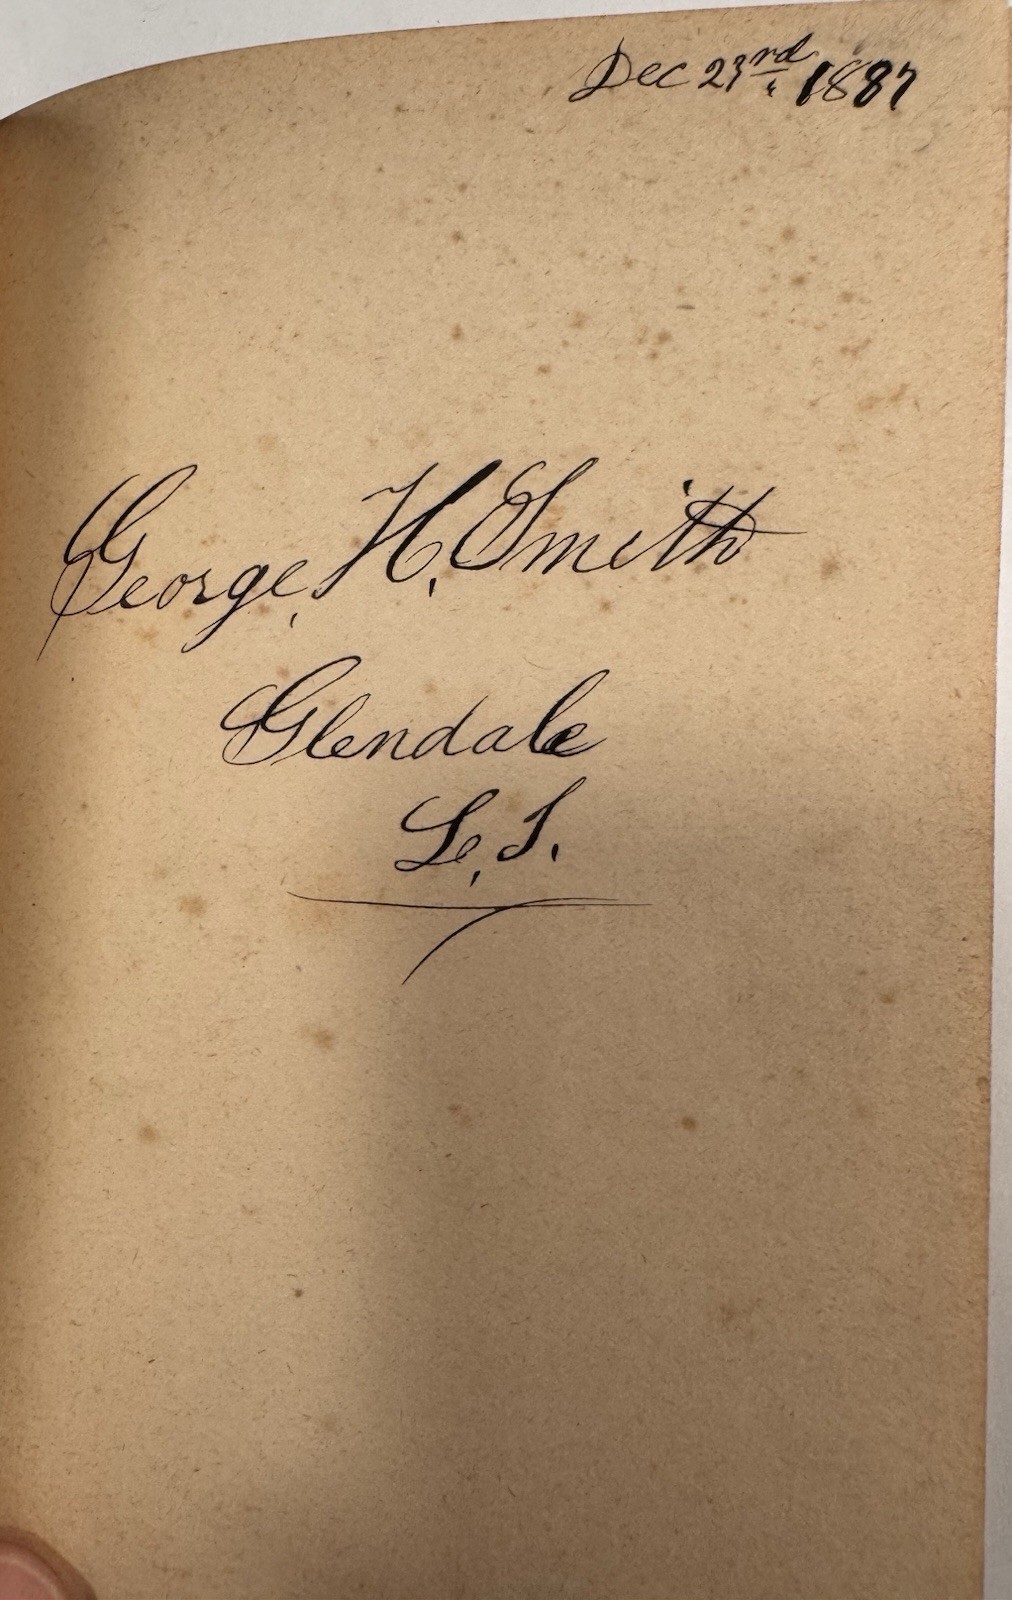 Dec 23rd 1887
George, H, Smith
Glendale
L, I.